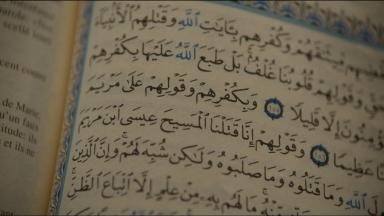 وَكُفْرِهِم بِـَٔايَـٰتِ ٱللَّهِ وَقَتْلِهِمُ ٱلْأَنۢبِيَآءَ
حَقٍّ وَقَوْلِهِمْ قُلُوبُنَا غُلْفٌۢ ۚ بَلْ طَبَعَ ٱللَّهُ عَلَيْهَا بِكُفْرِهِمْ
يُؤْمِنُونَ إِلَّا قَلِيلًا ١٥٥ وَبِكُفْرِهِمْ وَقَوْلِهِمْ عَلَىٰ مَرْيَمَ
عَظِيمًا ١٥٦ وَقَوْلِهِمْ إِنَّا قَتَلْنَا ٱلْمَسِيحَ عِيسَى ٱبْنَ مَرْيَمَ
ٱللَّهِ وَمَا قَتَلُوهُ وَمَا صَلَبُوهُ وَلَـٰكِن شُبِّهَ لَهُمْ ۚ وَإِنَّ ٱلَّذِينَ
مَا لَهُم بِهِۦ مِنْ عِلْمٍ إِلَّا ٱتِّبَاعَ ٱلظَّنِّ ۚ
scellé leurs
comme
de Marie,
u'un faux
titude: ils
et ils ne